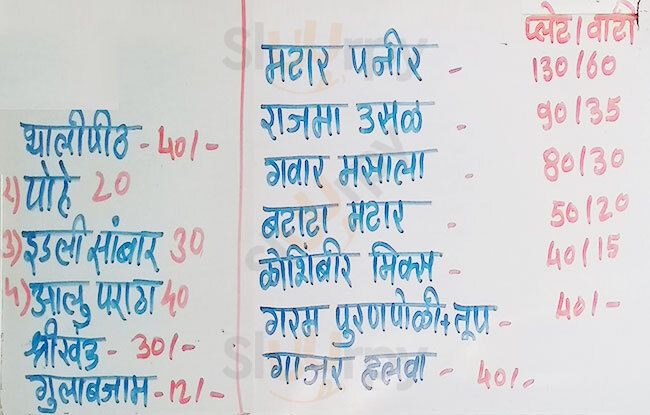 थालीपीठ - 40/-
2) पोहे 20
3) इडली सांबार 30
4) आलु पराठा 40
श्रीखंड - 30/-
गुलाबजाम - 12/-
प्लेट/वाटी
मटार पनीर - 130/60
राजमा उसळ - 90/35
गवार मसाला - 80/30
बटाटा मटार - 50/20
कोशिंबीर मिक्स - 40/15
गरम पुरणपोळी + तूप - 40/-
गाजर हलवा - 40/-